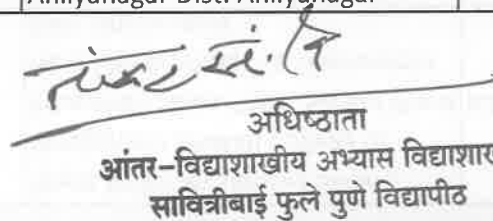 Ahilyanagar Dist. Ahilyanagar
अधिष्ठाता
आंतर-विद्याशाखीय अभ्यास विद्याशा
सावित्रीबाई फुले पुणे विद्यापीठ